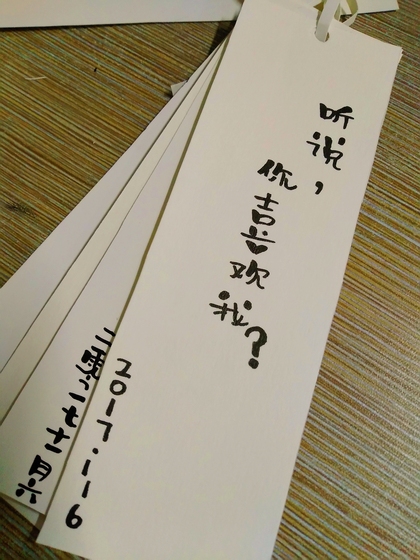 听说，
你喜欢我？
2017.116
二零一七十一月六